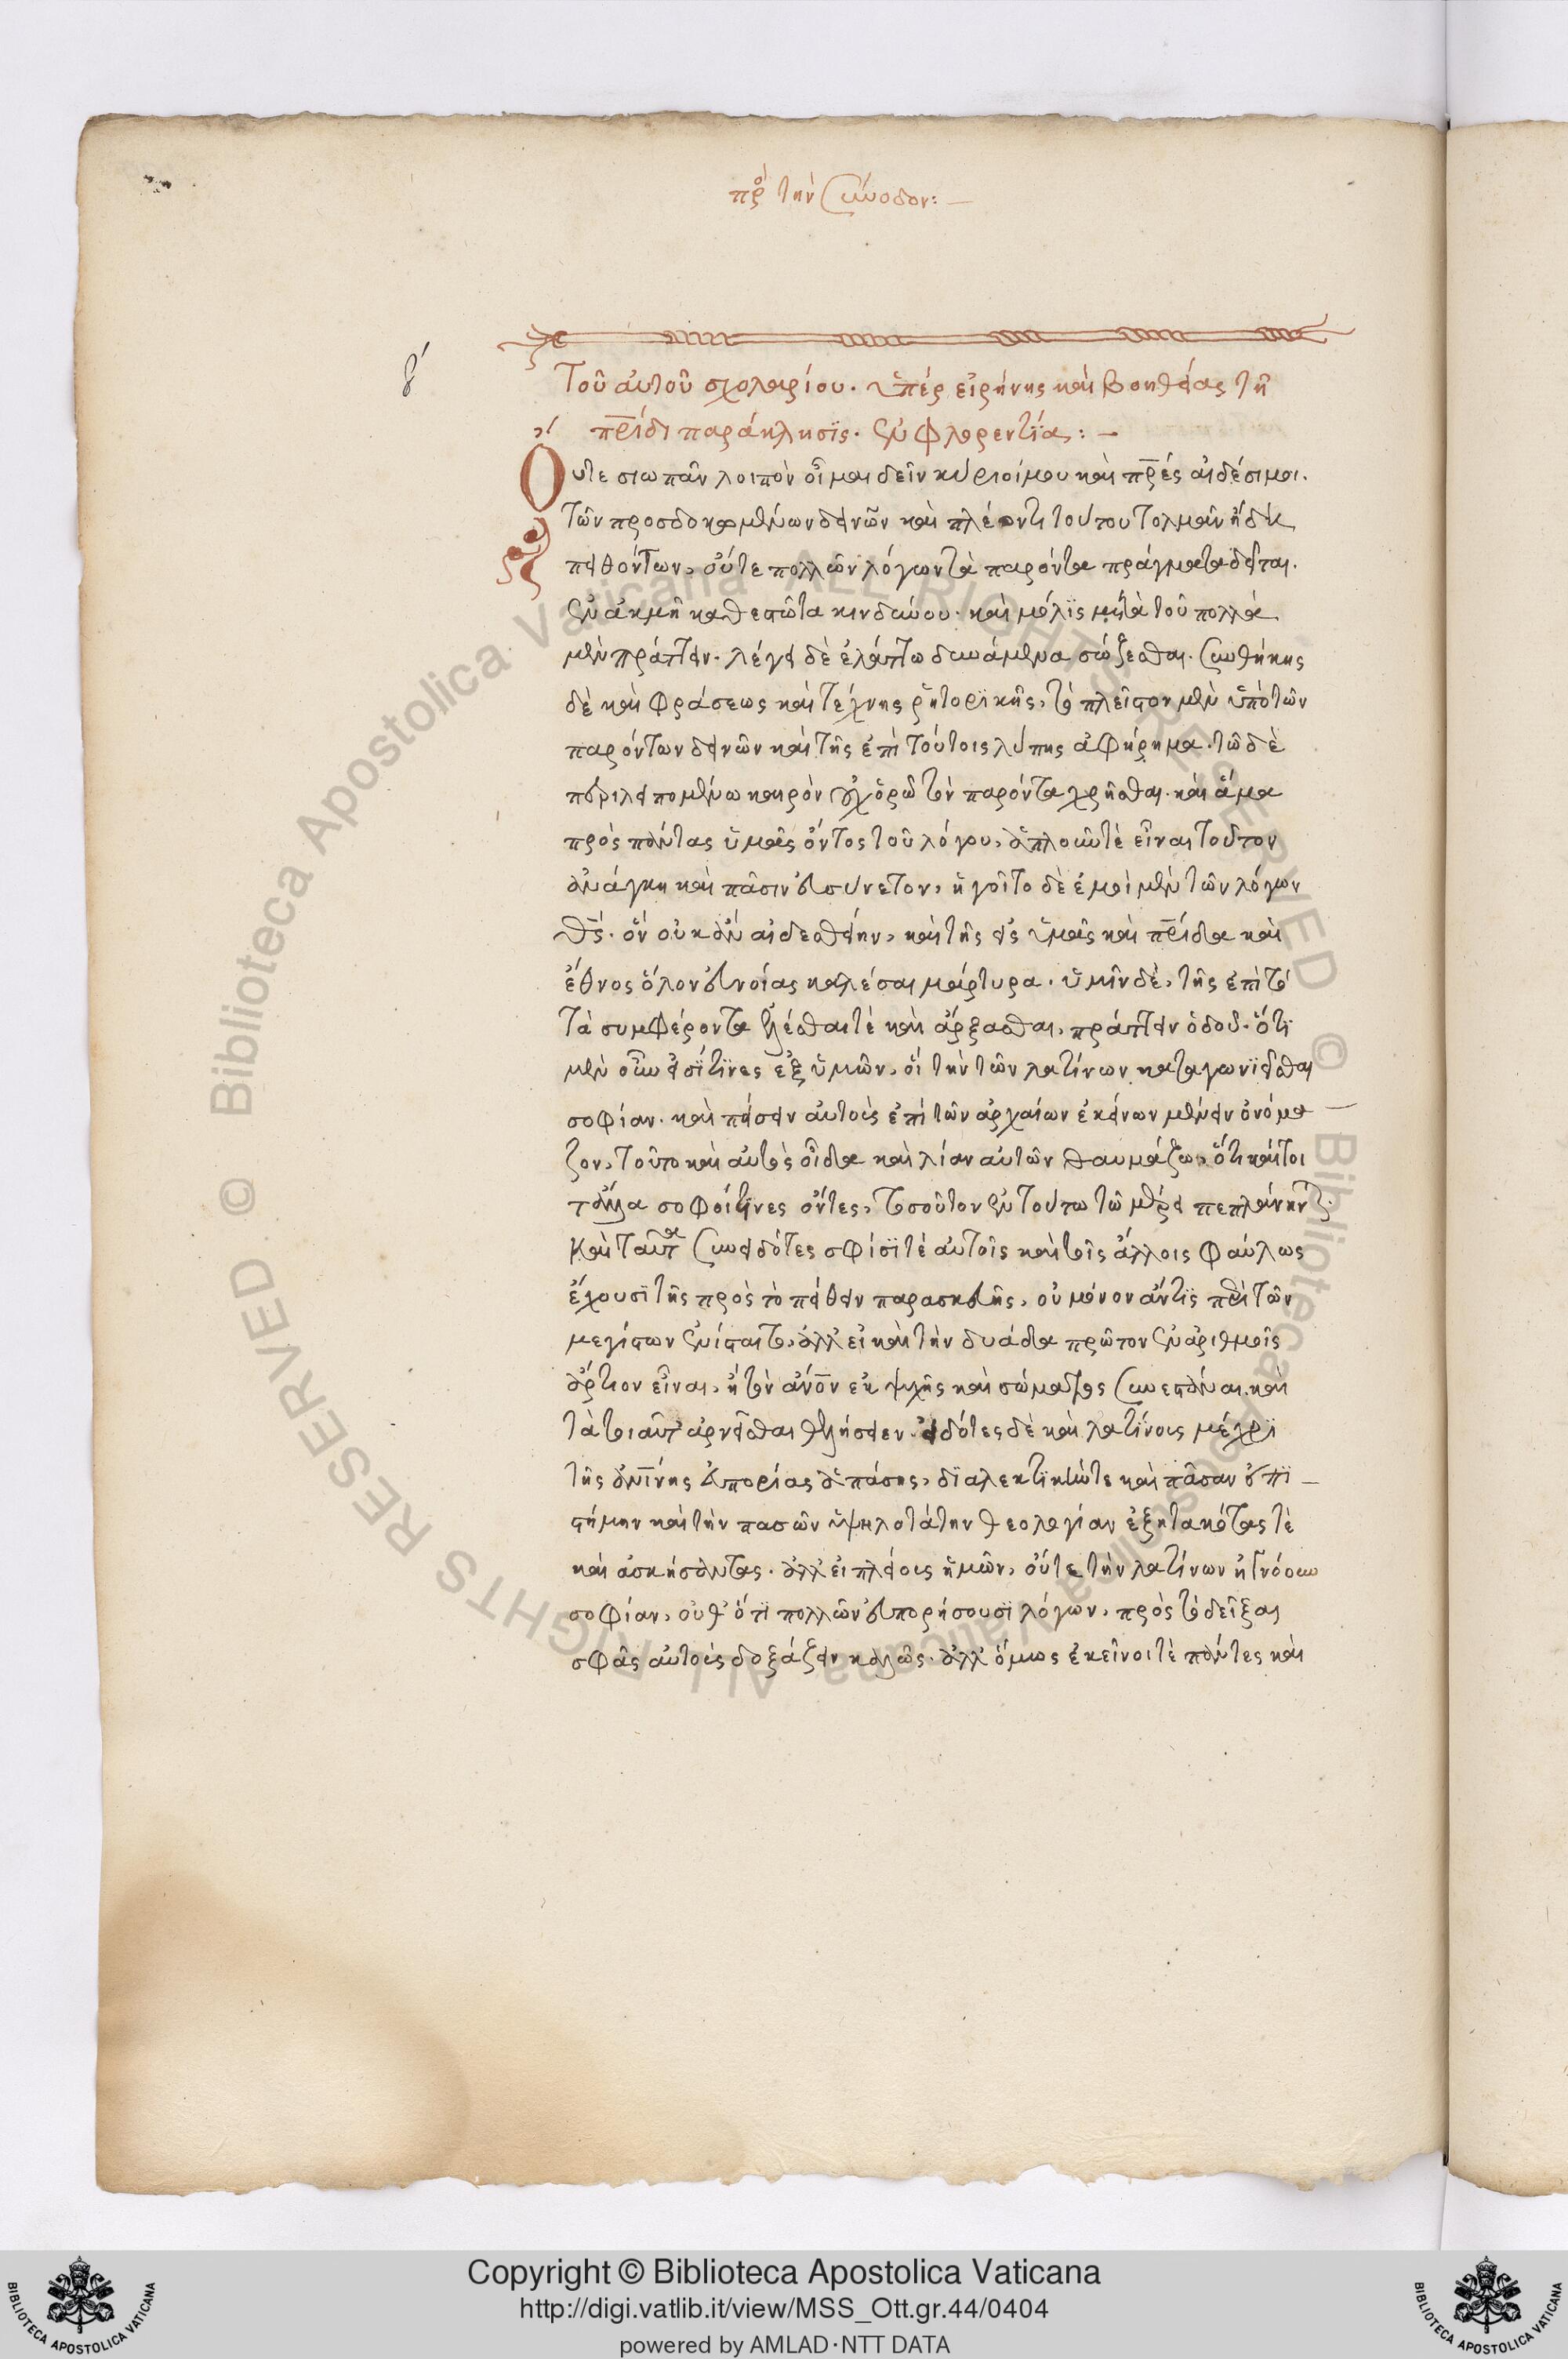 πρὸ τὴν σύνοδον:—
β´
Τοῦ αὐτοῦ σχολαρίου. ὑπὲρ εἰρήνης καὶ βοηθείας τῆ
πρίδι παράκλησϊς. ἐν φλορεντία:—
Οὔτε σιωπᾶν λοιπὸν οἶμαι δεῖν κύριοί μου καὶ πρές αἰδέσιμοι.
τῶν προσδοκωμένων δεινῶν καὶ πλέον τι τούτου τολμᾶν ἤδη
πειθόντων, οὔτε πολλῶν λόγων τὰ παρόντα πράγματα δεῖται.
ἐν ἀκμῆ καθεστῶτα κινδύνου. καὶ μόλϊς μετὰ τοῦ πολλὰ
μὲν πράττειν. λέγειν δὲ ἐλάττω δυνάμενα σώζεσθαι. συνθήκης
δὲ καὶ φράσεως καὶ τέχνης ῥητορϊκῆς, τὸ πλεῖστον μὲν ὑπὸ τῶν
παρόντων δεινῶν καὶ τῆς ἐπὶ τούτοις λύπης ἀφήρημαι. τῶ δὲ
περιλειπομένω καιρὸν οὐχ ὁρῶ τὸν παρόντα χρῆσθαι. καὶ ἅμα
πρὸς πάντας ὑμᾶς ὄντος τοῦ λόγου, ἁπλοῦν τὲ εἶναι τοῦτον
ἀνάγκη καὶ πᾶσιν εὐσύνετον, ἡγοῖτο δὲ ἐμοὶ μὲν τῶν λόγων
θς. ὃν οὐκ ἂν αἰδεσθείην, καὶ τῆς εἰς ὑμᾶς καὶ πρίδα καὶ
ἔθνος ὅλον εὐνοίας καλέσαι μάρτυρα. ὑμῖν δὲ, τῆς ἐπὶ τὸ
τὰ συμφέροντα ἑλέσθαι τὲ καὶ ἄρξασθαι, πράττειν ὁδοῦ. ὅτϊ
μὲν οὖν εἰσΐ τϊνες ἐξ ὑμῶν, οἳ τὴν τῶν λατίνων καταγωνϊεῖσθαι
σοφίαν. καὶ πείσειν αὐτοὺς ἐπὶ τῶν ἀρχαίων ἐκείνων μένειν ἐνόμι
ζον, τοῦτο καὶ αὐτὸς οἶδα καὶ λίαν αὐτῶν θαυμάζω, ὅτι καίτοι
τἄλλα σοφοί τϊνες ὄντες, τοσοῦτον ἐν τούτω τῶ μέρει πεπλάνηντ
καὶ ταῦτα συνειδότες σφίσΐ τὲ αὐτοῖς καὶ τοῖς ἄλλοις φαύλως
ἔχουσϊ τῆς πρὸς τὸ πείθειν παρασκευῆς, οὐ μόνον ἄν τϊς περὶ τῶν
μεγίστων ἐνίσταιτο, ἀλλ' εἰ καὶ τὴν δυάδα πρῶτον ἐν ἀριθμοῖς
ἄρτιον εἶναι, ἢ τὸν ἄνον ἐκ ψυχῆς καὶ σώματος συνεστάναι. καὶ
τὰ τοιαῦτ' ἀρνεῖσθαι θελήσειεν. εἰδότες δὲ καὶ λατίνους μέχρϊ
τῆς ἀνίνης εὐπορίας ἁπάσης, δϊαλεκτϊκήν τε καὶ πᾶσαν ἐπϊ
στήμην καὶ τὴν πασῶν ὑψηλοτάτην θεολογίαν ἐξητακότας τὲ
καὶ ἀσκήσαντας. ἀλλ' εἰ πλείους ἡμῶν, οὔτε τὴν λατίνων ἠγνόουν
σοφίαν, οὔθ' ὅτϊ πολλῶν εὐπορήσουσϊ λόγων, πρὸς τὸ δεῖξαι
σφᾶς αὐτοὺς δοξάζειν καλῶς. ἀλλ' ὅμως ἐκεῖνοι τὲ πάντες καὶ
Copyright © Biblioteca Apostolica Vaticana
http://digi.vatlib.it/view/MSS_Ott.gr.44/0404
powered by AMLAD·NTT DATA